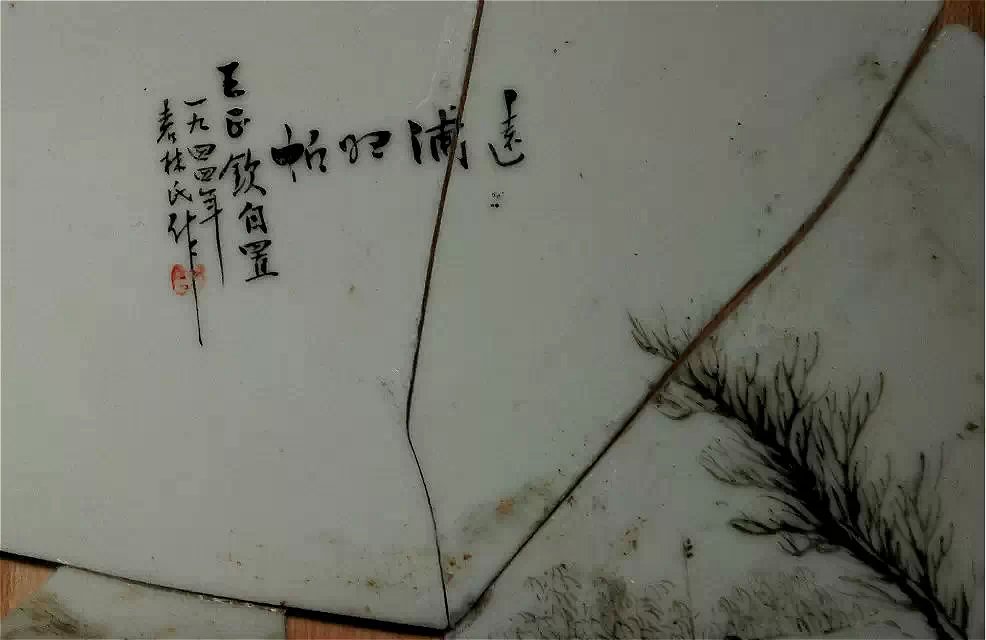 遠浦归帆
王正欽自置
一九四四年
春林氏作